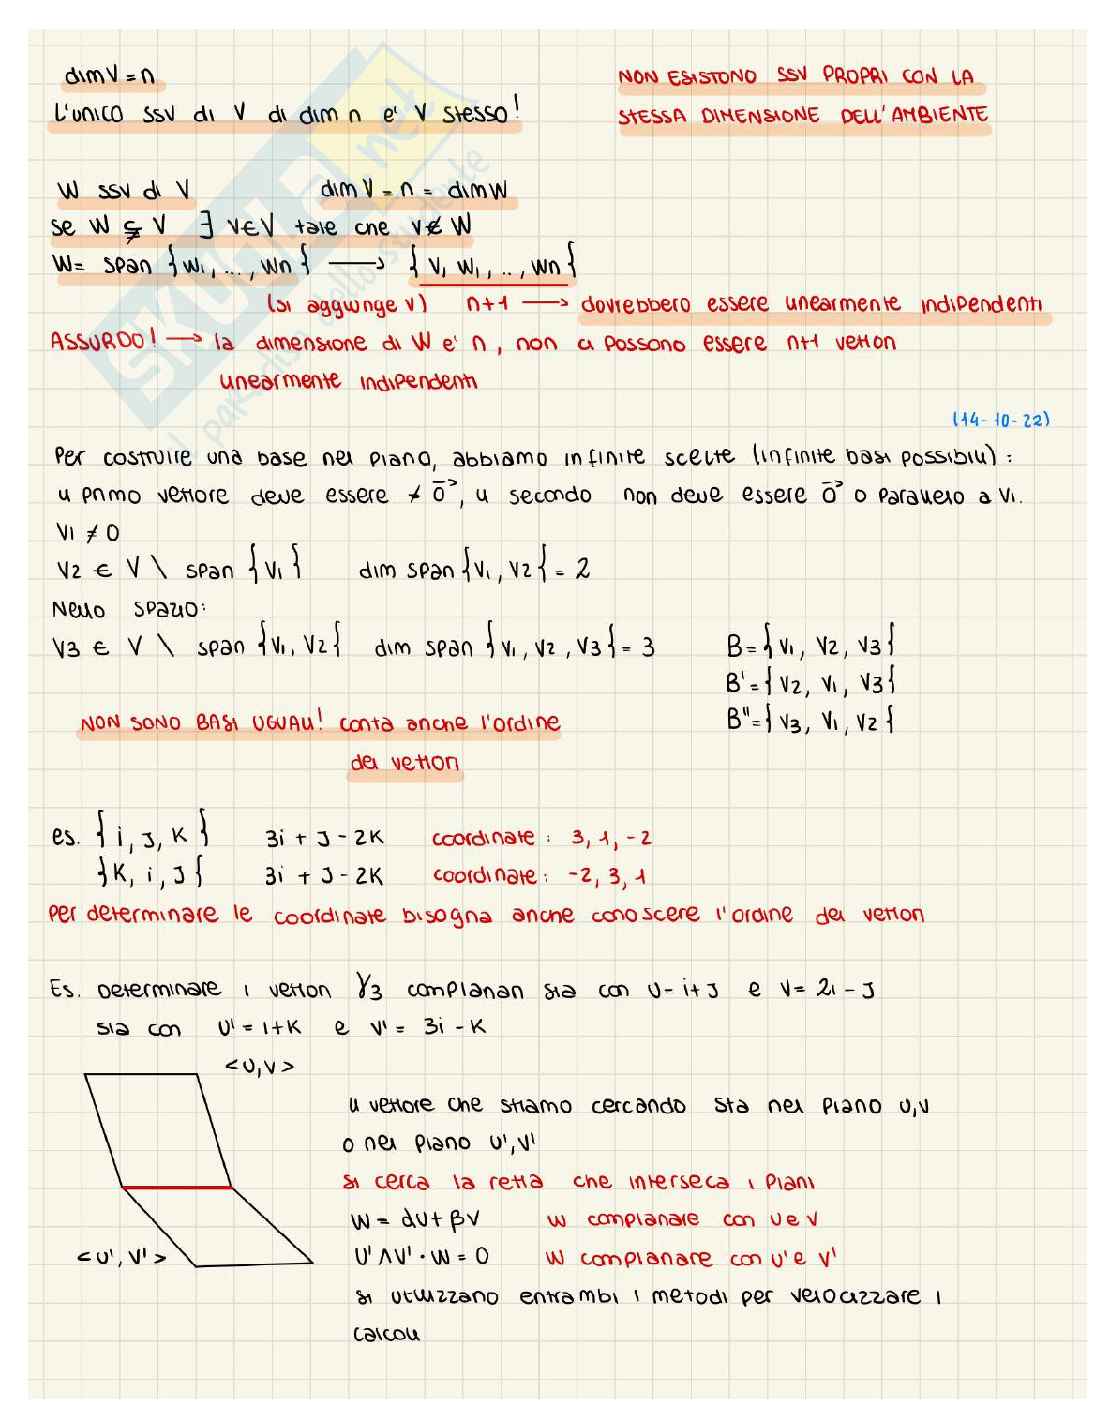 dim V = n
L'unico ssv di V di dim n e' V stesso!
NON ESISTONO SSV PROPRI CON LA
STESSA DIMENSIONE DELL'AMBIENTE
W ssv di V dim V = n = dim W
se W ⊊ V ∃ v∈V tale che v∉W
W= span {w1, ..., wn} ⟶ {v, w1, .., wn}
(si aggiunge v) n+1 ⟶ dovrebbero essere linearmente indipendenti
ASSURDO! ⟶ la dimensione di W e' n, non ci possono essere n+1 vettori
linearmente indipendenti
(14-10-22)
Per costruire una base nel piano, abbiamo infinite scelte (infinite basi possibili):
il primo vettore deve essere ≠ 0⃗, il secondo non deve essere 0⃗ o parallelo a v1.
v1 ≠ 0
v2 ∈ V \ span {v1} dim span {v1, v2} = 2
Nello spazio:
v3 ∈ V \ span {v1, v2} dim span {v1, v2, v3} = 3
B = {v1, v2, v3}
B' = {v2, v1, v3}
B'' = {v3, v1, v2}
NON SONO BASI UGUALI! conta anche l'ordine
dei vettori
es. {i, J, K} 3i + J - 2K coordinate: 3, 1, -2
{K, i, J} 3i + J - 2K coordinate: -2, 3, 1
Per determinare le coordinate bisogna anche conoscere l'ordine dei vettori
Es. Determinare i vettori γ3 complanari sia con U - i+J e V = 2i - J
sia con U' = i+K e V' = 3i - K
<U, V>
il vettore che stiamo cercando sta nel piano U,V
o nel piano U',V'
si cerca la retta che interseca i piani
W = αU + βV w complanare con U e V
U' ∧ V' · W = 0 W complanare con U' e V'
<U', V'>
si utilizzano entrambi i metodi per velocizzare i
calcoli
SKUOLA.net
il paradiso dello studente